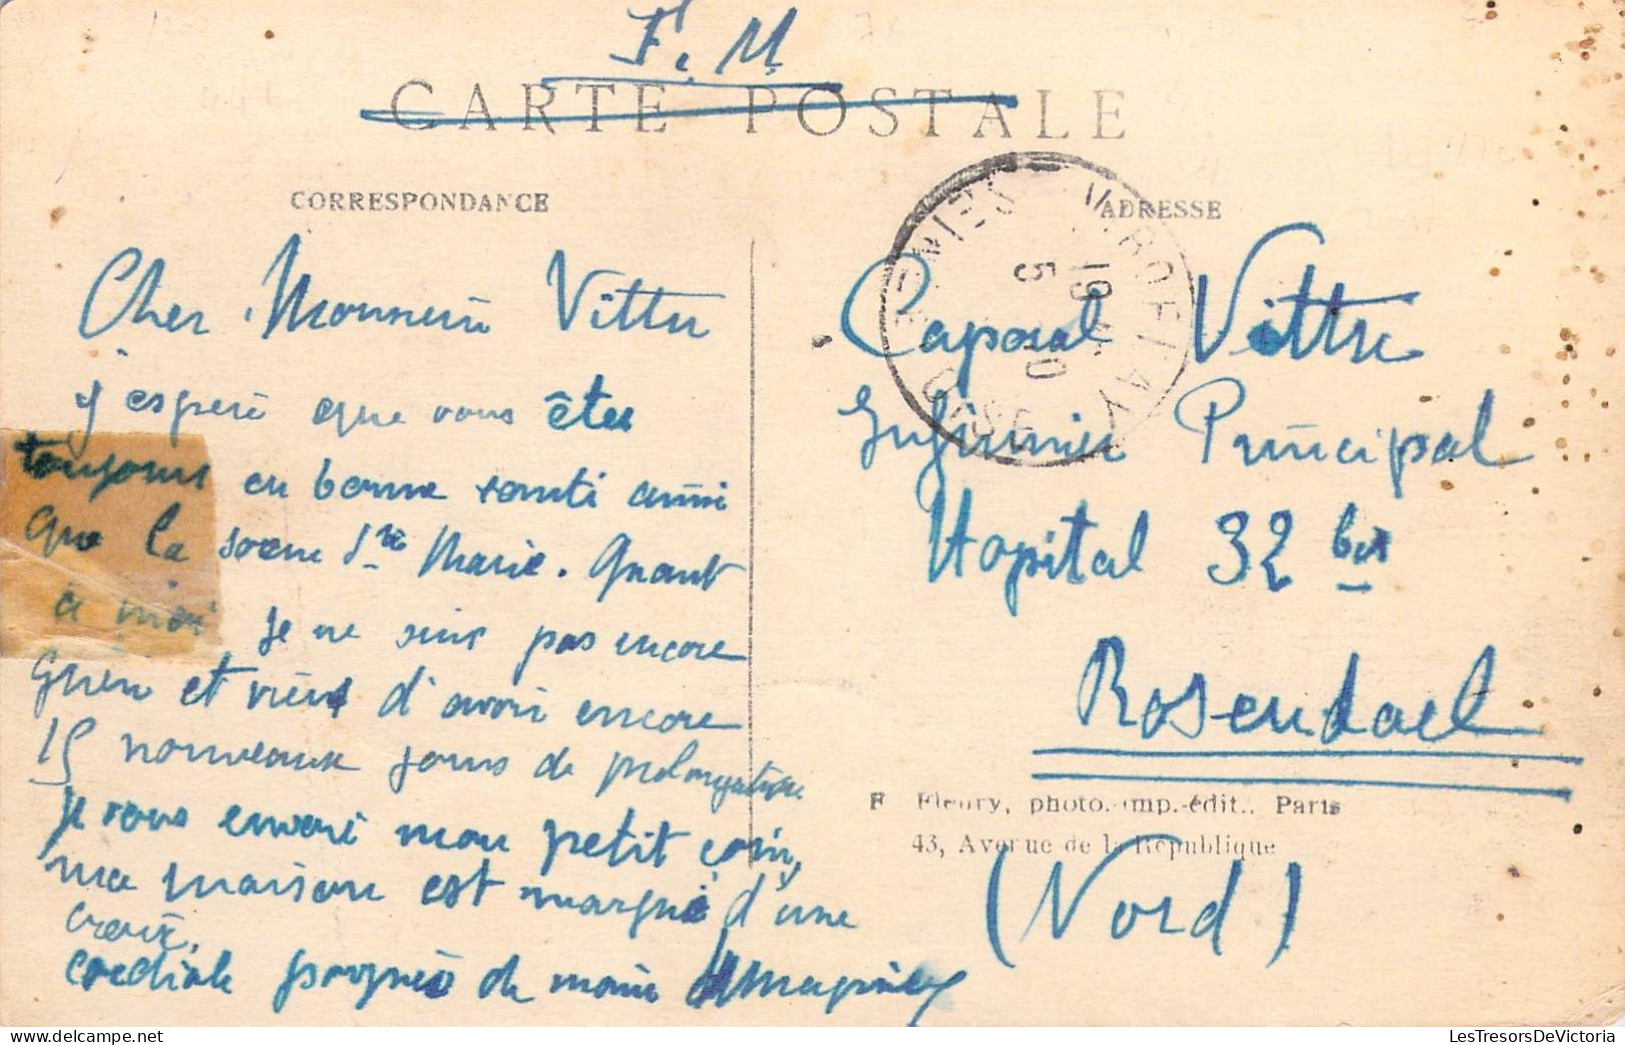 F. M
CARTE POSTALE
CORRESPONDANCE
ADRESSE
Cher Monsieur Vittu
j'espère que vous êtes
toujours en bonne santé ainsi
que la soeur Ste Marie. Quant
à moi je ne suis pas encore
guéri et viens d'avoir encore
15 nouveaux jours de prolongation
je vous envoie mon petit coin,
ma maison est marqué d'une
croix.
cordiale poignée de main
19
5
OISE
Caporal Vittu
Infirmier Principal
Hopital 32 bis
Rosendael
F Fleury, photo.-imp.-édit., Paris
43, Avenue de la République
(Nord)
LesTresorsDeVictoria.com